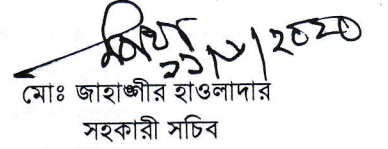 ২০২০
মোঃ জাহাঙ্গীর হাওলাদার
সহকারী সচিব